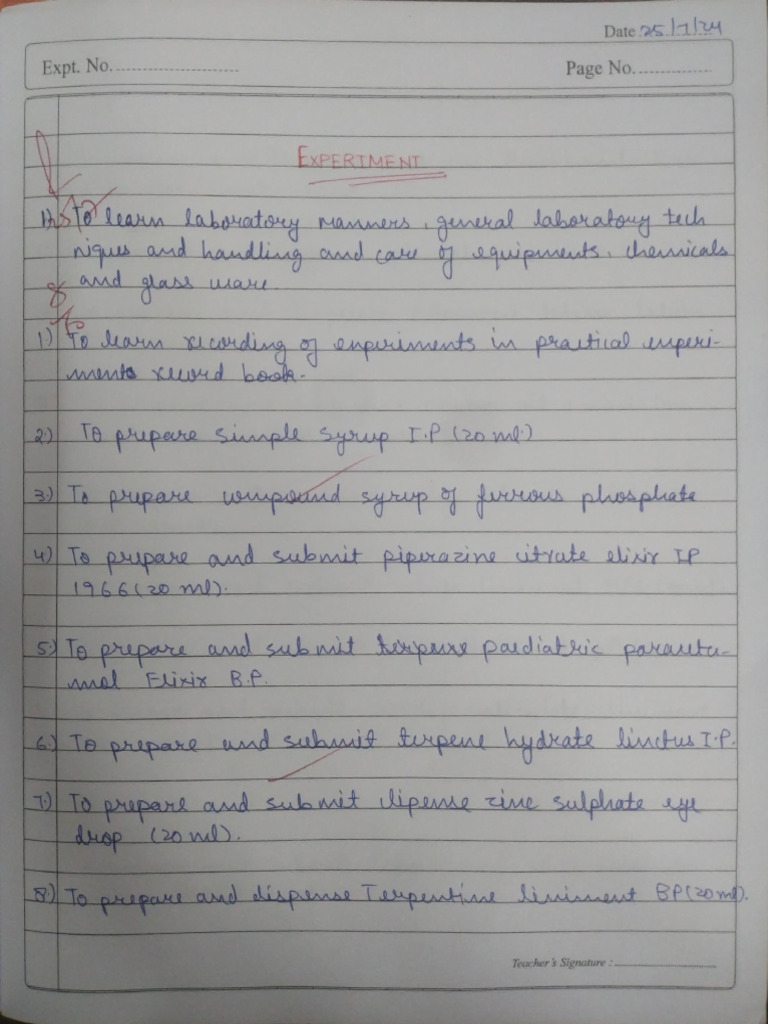 Date 25/7/24
Expt. No.
Page No.
EXPERTMENT
To learn laboratory manners, general laboratory tech
niques and handling and care of equipments, chemicals
and glass ware.
1) To learn recording of enperiments in practical experi-
ments record book.
2) To prepare simple syrup I.P (20 ml)
3) To prepare compound syrup of ferrous phosphate
4) To prepare and submit piperazine citrate elixir IP
1966 (20 ml).
5) To prepare and submit paediatric paraceta-
mol Elixir B.P.
6.) To prepare and submit terpene hydrate linctus I.P.
7.) To prepare and submit dipense zinc sulphate eye
drop (20 ml).
8.) To prepare and dispense Terpentine liniment BP (20 ml).
Teacher's Signature :